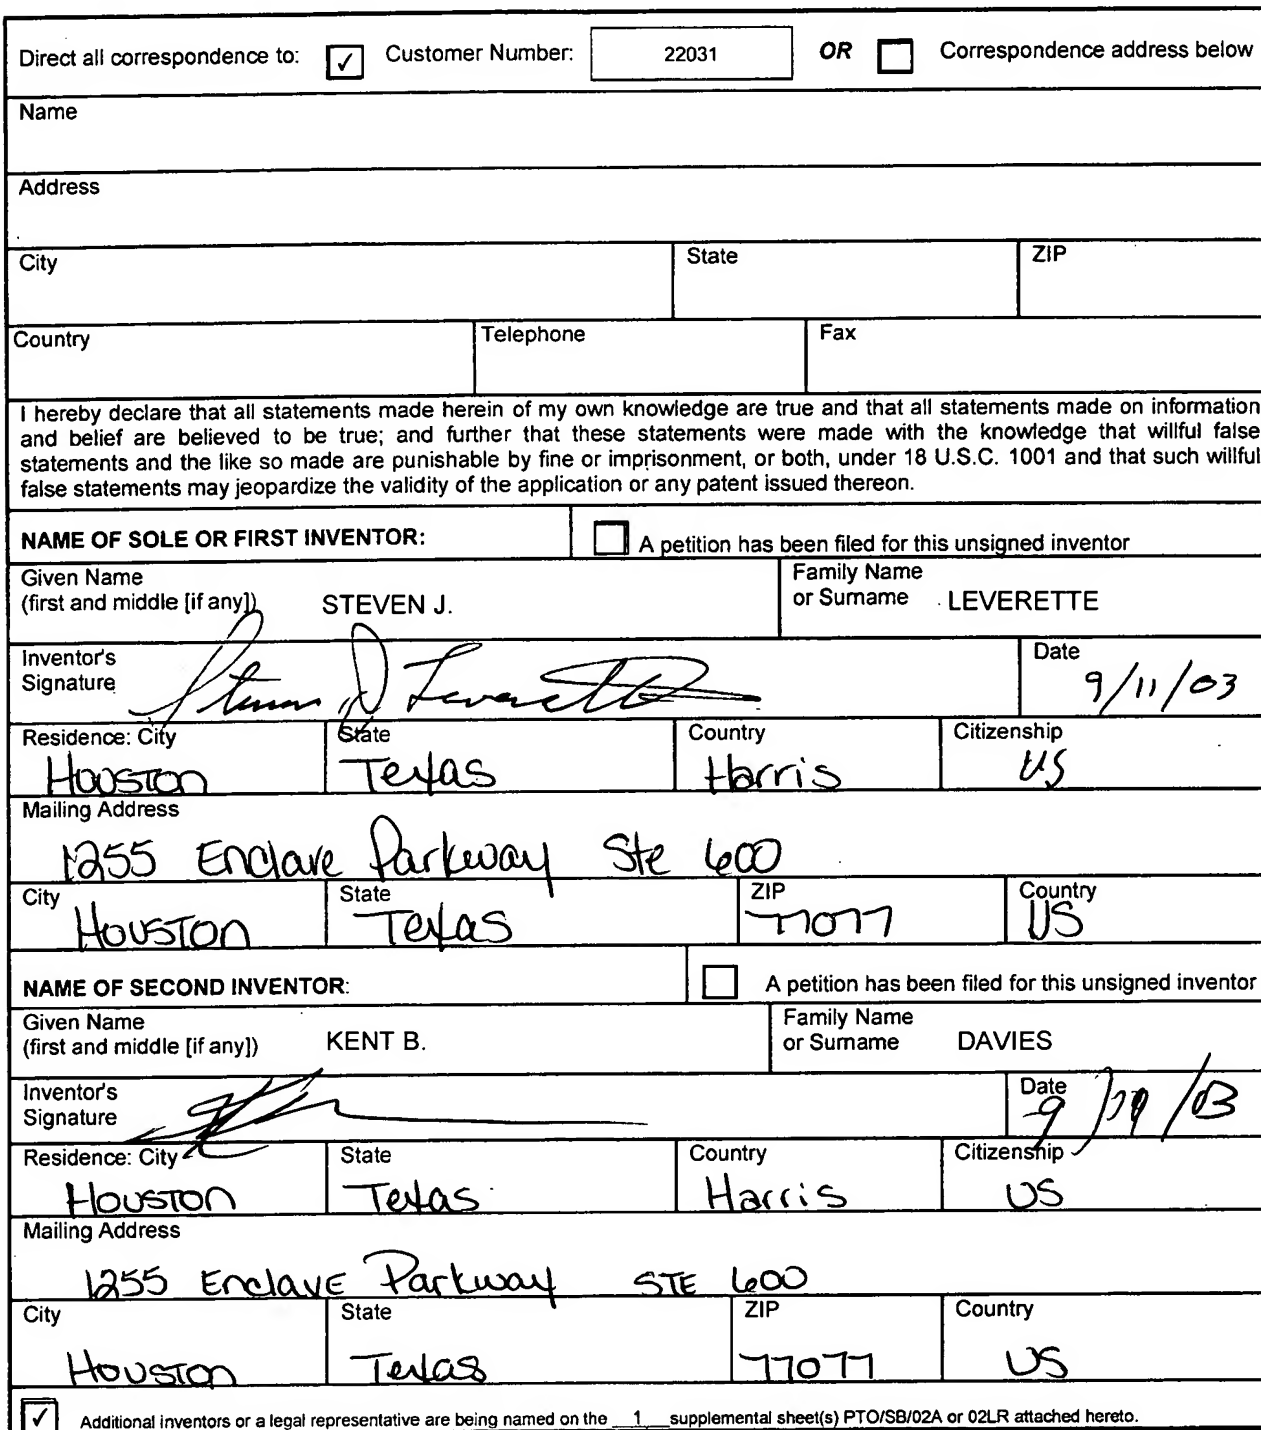 Direct all correspondence to: ✓ Customer Number: 22031 OR Correspondence address below
Name
Address
City State ZIP
Country Telephone Fax
I hereby declare that all statements made herein of my own knowledge are true and that all statements made on information
and belief are believed to be true; and further that these statements were made with the knowledge that willful false
statements and the like so made are punishable by fine or imprisonment, or both, under 18 U.S.C. 1001 and that such willful
false statements may jeopardize the validity of the application or any patent issued thereon.
NAME OF SOLE OR FIRST INVENTOR: A petition has been filed for this unsigned inventor
Given Name Family Name
(first and middle [if any]) STEVEN J. or Surname LEVERETTE
Inventor's Date
Signature Steven J Leverette 9/11/03
Residence: City State Country Citizenship
Houston Texas Harris US
Mailing Address
1255 Enclave Parkway Ste 600
City State ZIP Country
Houston Texas 77077 US
NAME OF SECOND INVENTOR: A petition has been filed for this unsigned inventor
Given Name Family Name
(first and middle [if any]) KENT B. or Surname DAVIES
Inventor's Date
Signature 9/ /03
Residence: City State Country Citizenship
Houston Texas Harris US
Mailing Address
1255 Enclave Parkway STE 600
City State ZIP Country
Houston Texas 77077 US
✓ Additional inventors or a legal representative are being named on the 1 supplemental sheet(s) PTO/SB/02A or 02LR attached hereto.